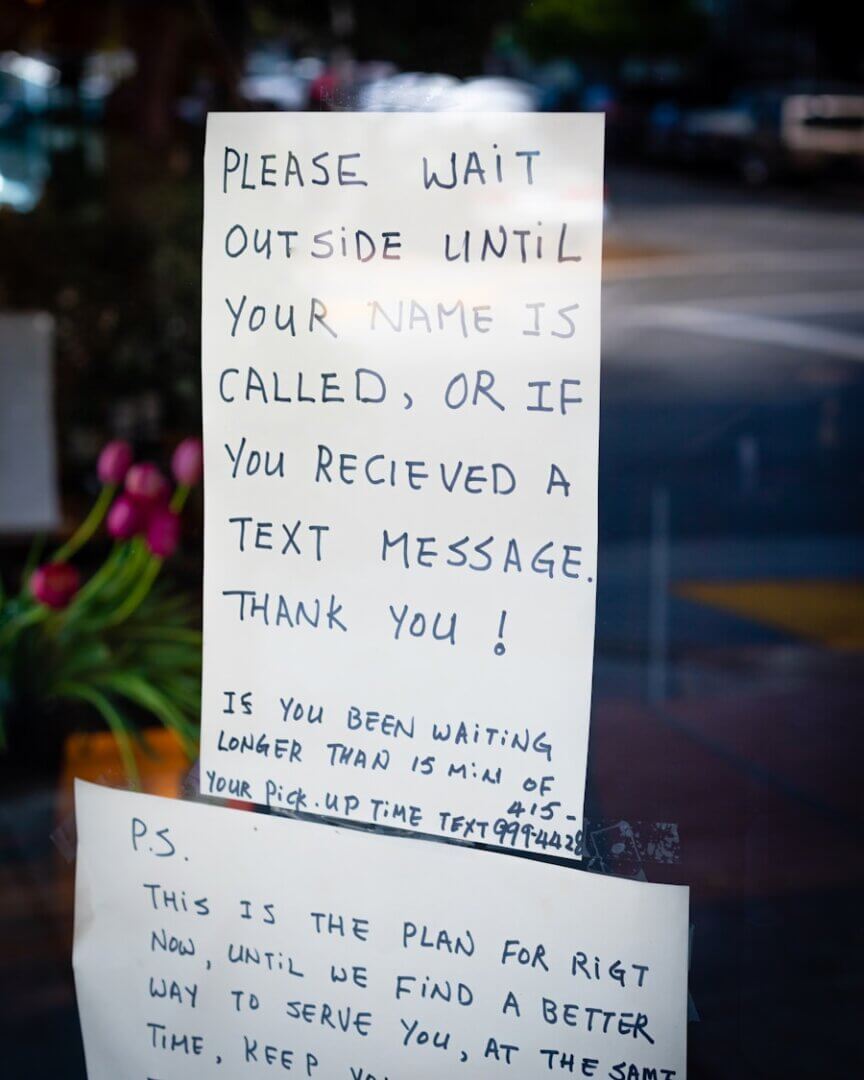 PLEASE WAiT
OUTSiDE UNTiL
YOUR NAME IS
CALLED, OR IF
YOU RECIEVED A
TEXT MESSAGE.
THANK YOU !
IS YOU BEEN WAiTiNG
LONGER THAN 15 MiN OF
YOUR Pick-UP TiME TEXT 415-
999-4428
P.S.
THiS IS THE PLAN FOR RiGT
NOW, UNTiL WE FiND A BETTER
WAY TO SERVE YOU, AT THE SAMT
TiME, KEEP